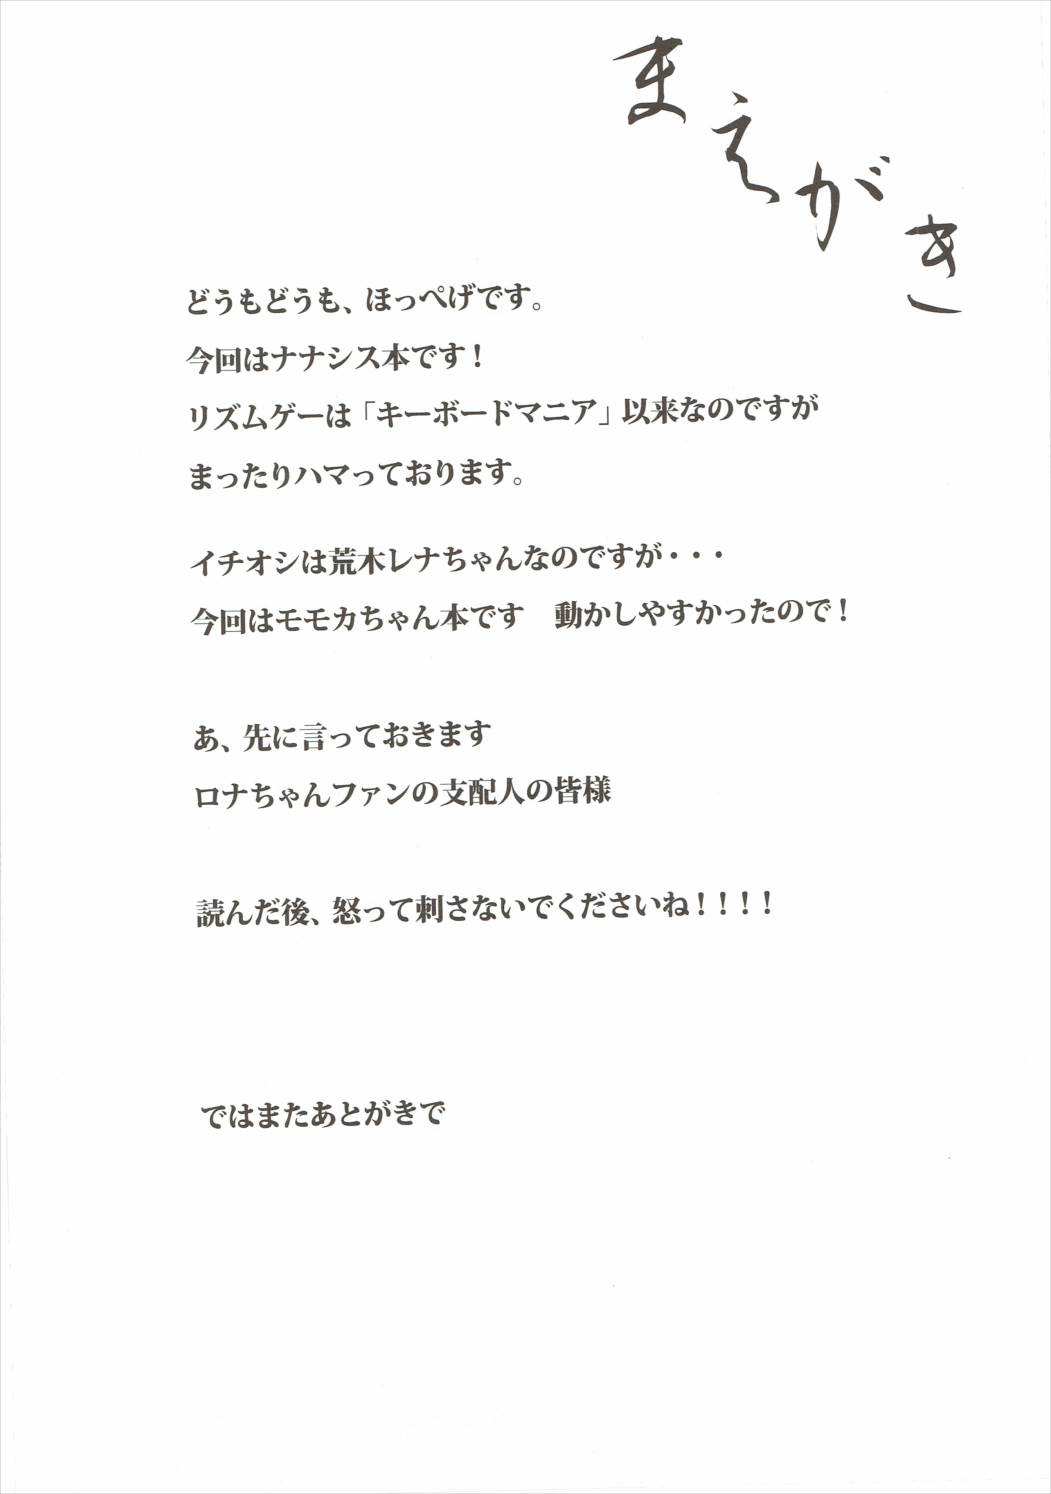 まえがき
どうもどうも、ほっぺげです。
今回はナナシス本です！
リズムゲーは「キーボードマニア」以来なのですが
まったりハマっております。
イチオシは荒木レナちゃんなのですが・・・
今回はモモカちゃん本です　動かしやすかったので！
あ、先に言っておきます
ロナちゃんファンの支配人の皆様
読んだ後、怒って刺さないでくださいね！！！！
ではまたあとがきで